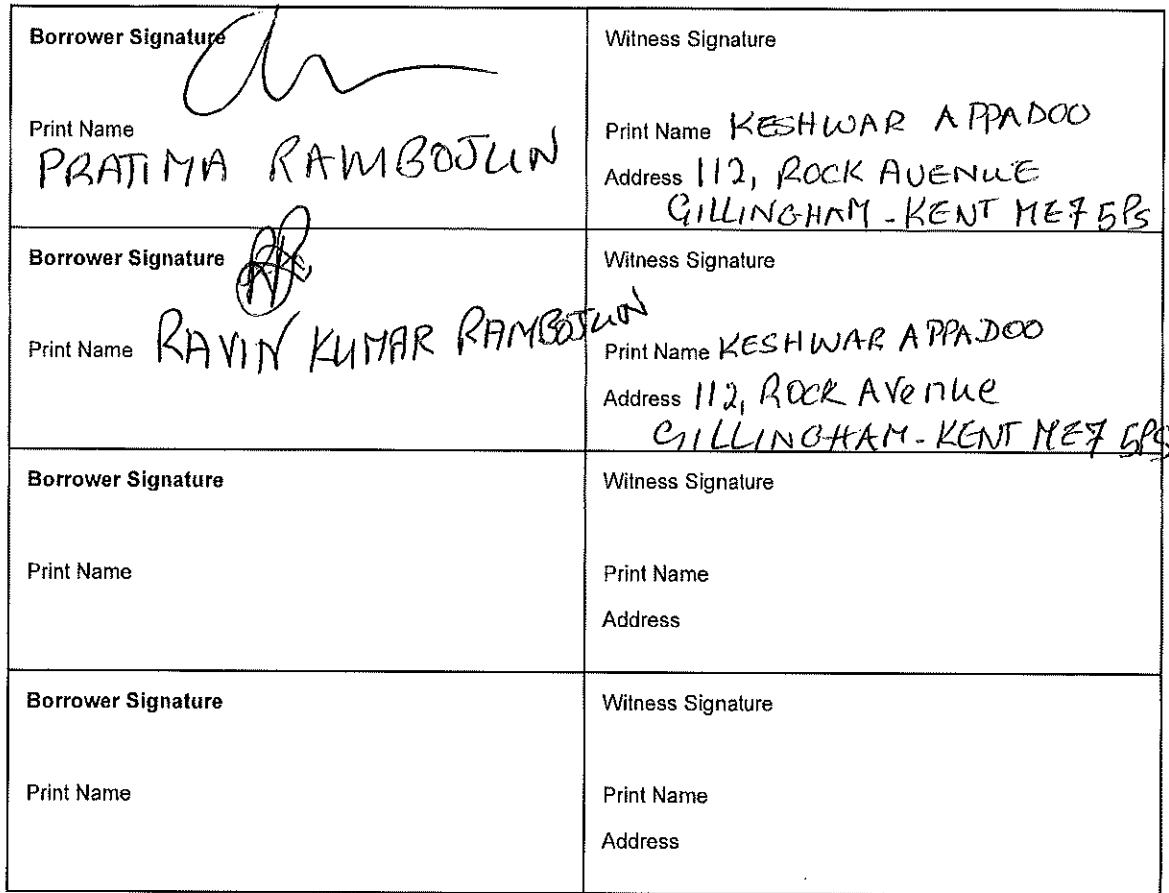 Borrower Signature
Print Name
PRATIMA RAMBOJUN
Witness Signature
Print Name KESHWAR APPADOO
Address 112, ROCK AVENUE
GILLINGHAM - KENT ME7 5PS
Borrower Signature RR
Print Name RAVIN KUMAR RAMBOJUN
Witness Signature
Print Name KESHWAR APPADOO
Address 112, ROCK AVenue
GILLINGHAM - KENT ME7 5PS
Borrower Signature
Print Name
Witness Signature
Print Name
Address
Borrower Signature
Print Name
Witness Signature
Print Name
Address